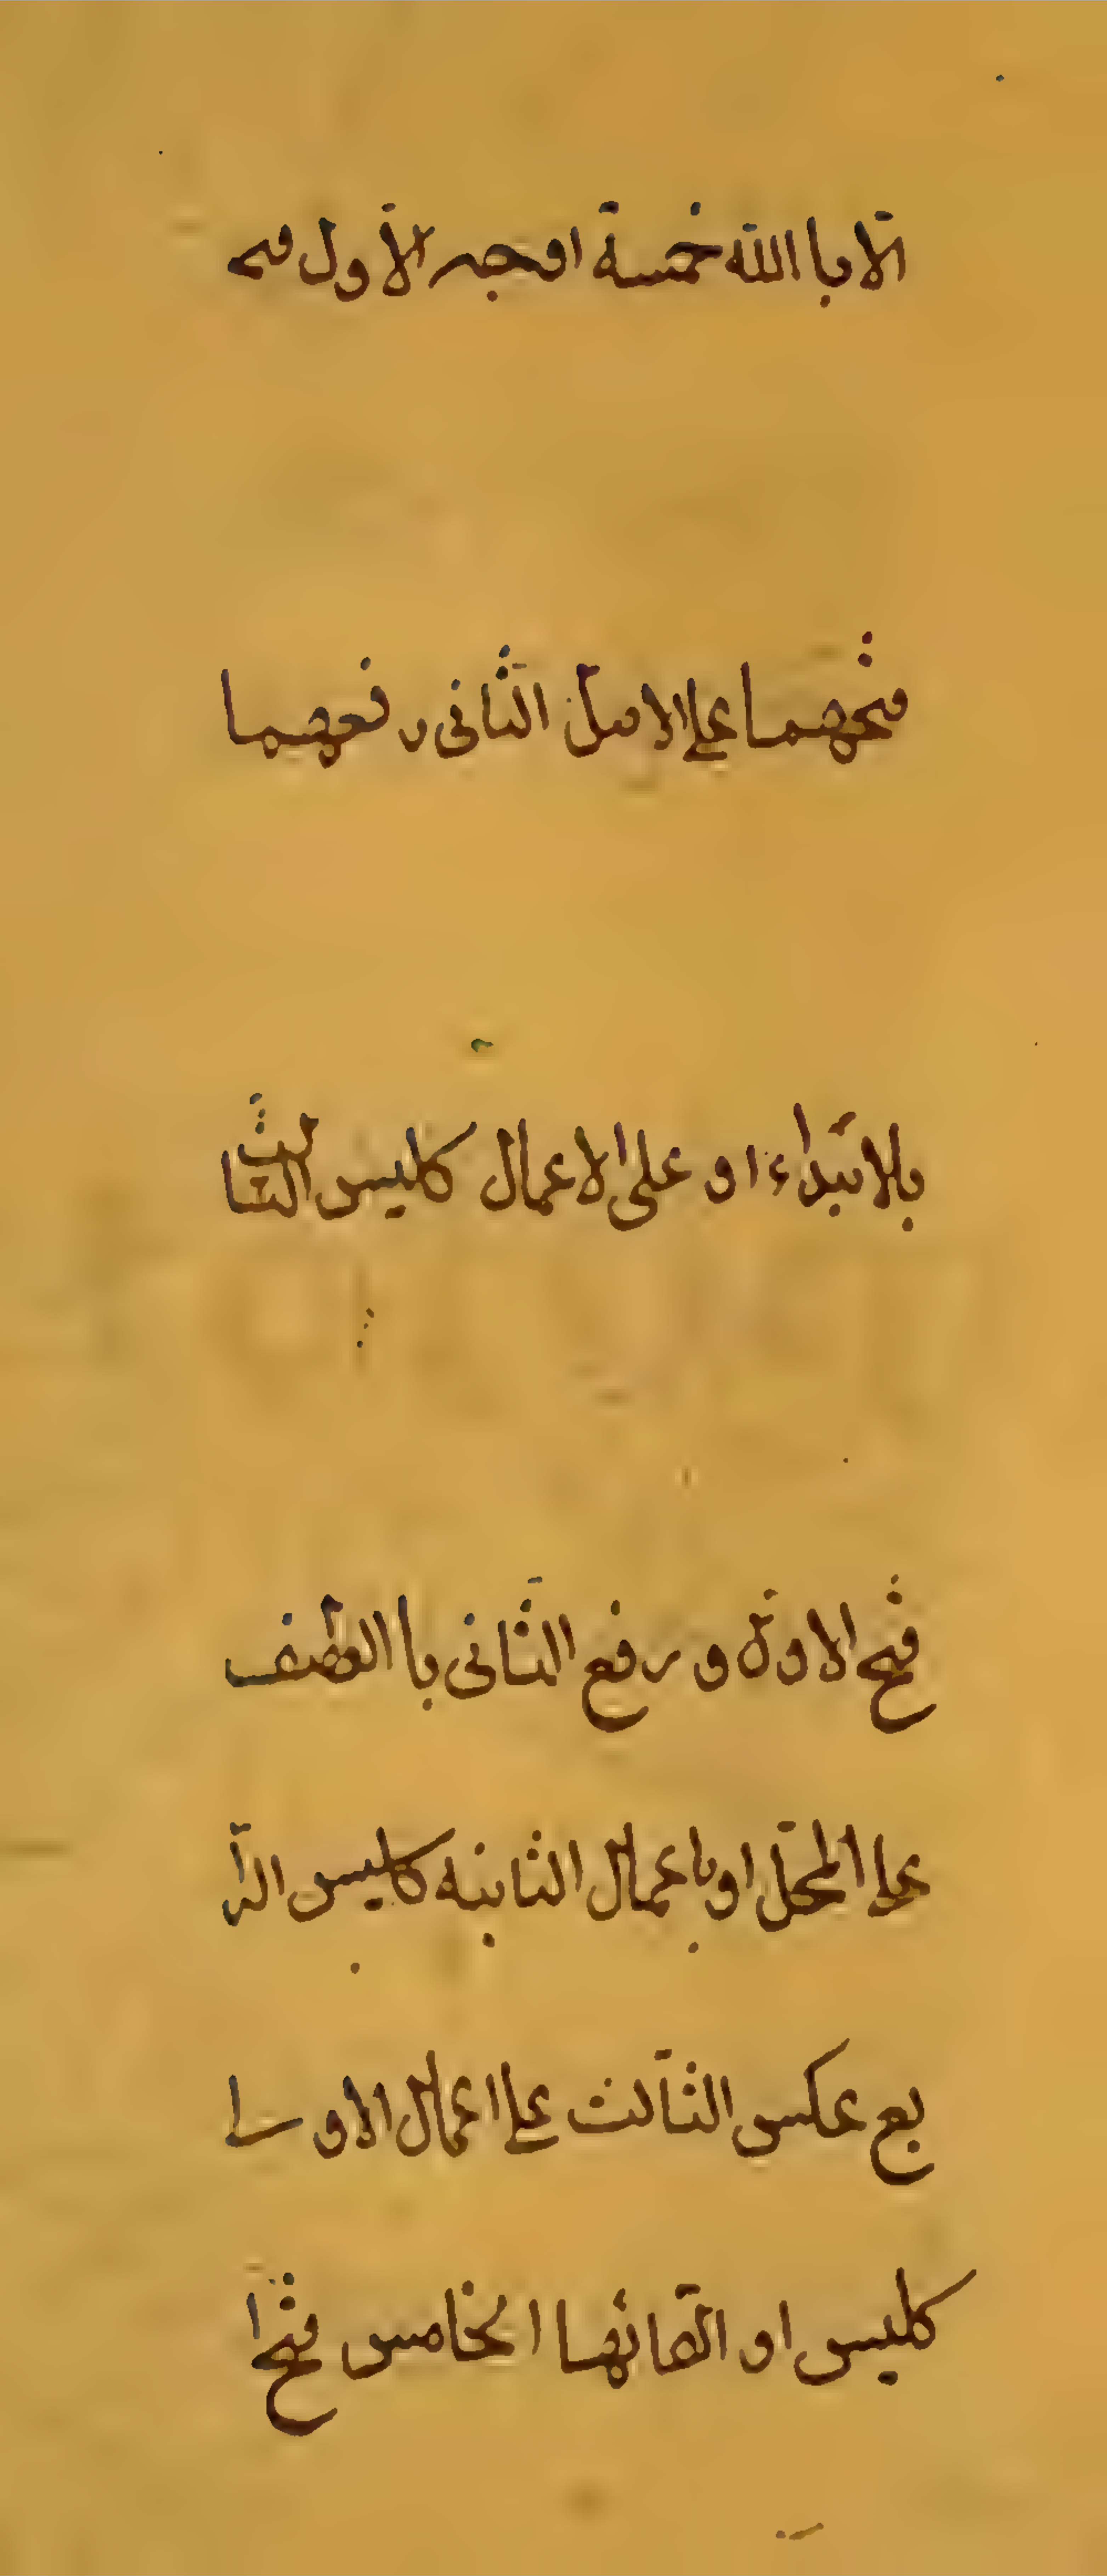 الا با الله خمسة اوجه الاول فتح
فتحهما على الاصل الثانى رفعهما
بالابتداء او على الاعمال كليس الثالث
فتح الاول ورفع الثانى با العطف
على المحل او باعمال الثانيه كليس الرا
بع عكس الثالث على اعمال الاولى
كليس او الغائها الخامس فتح